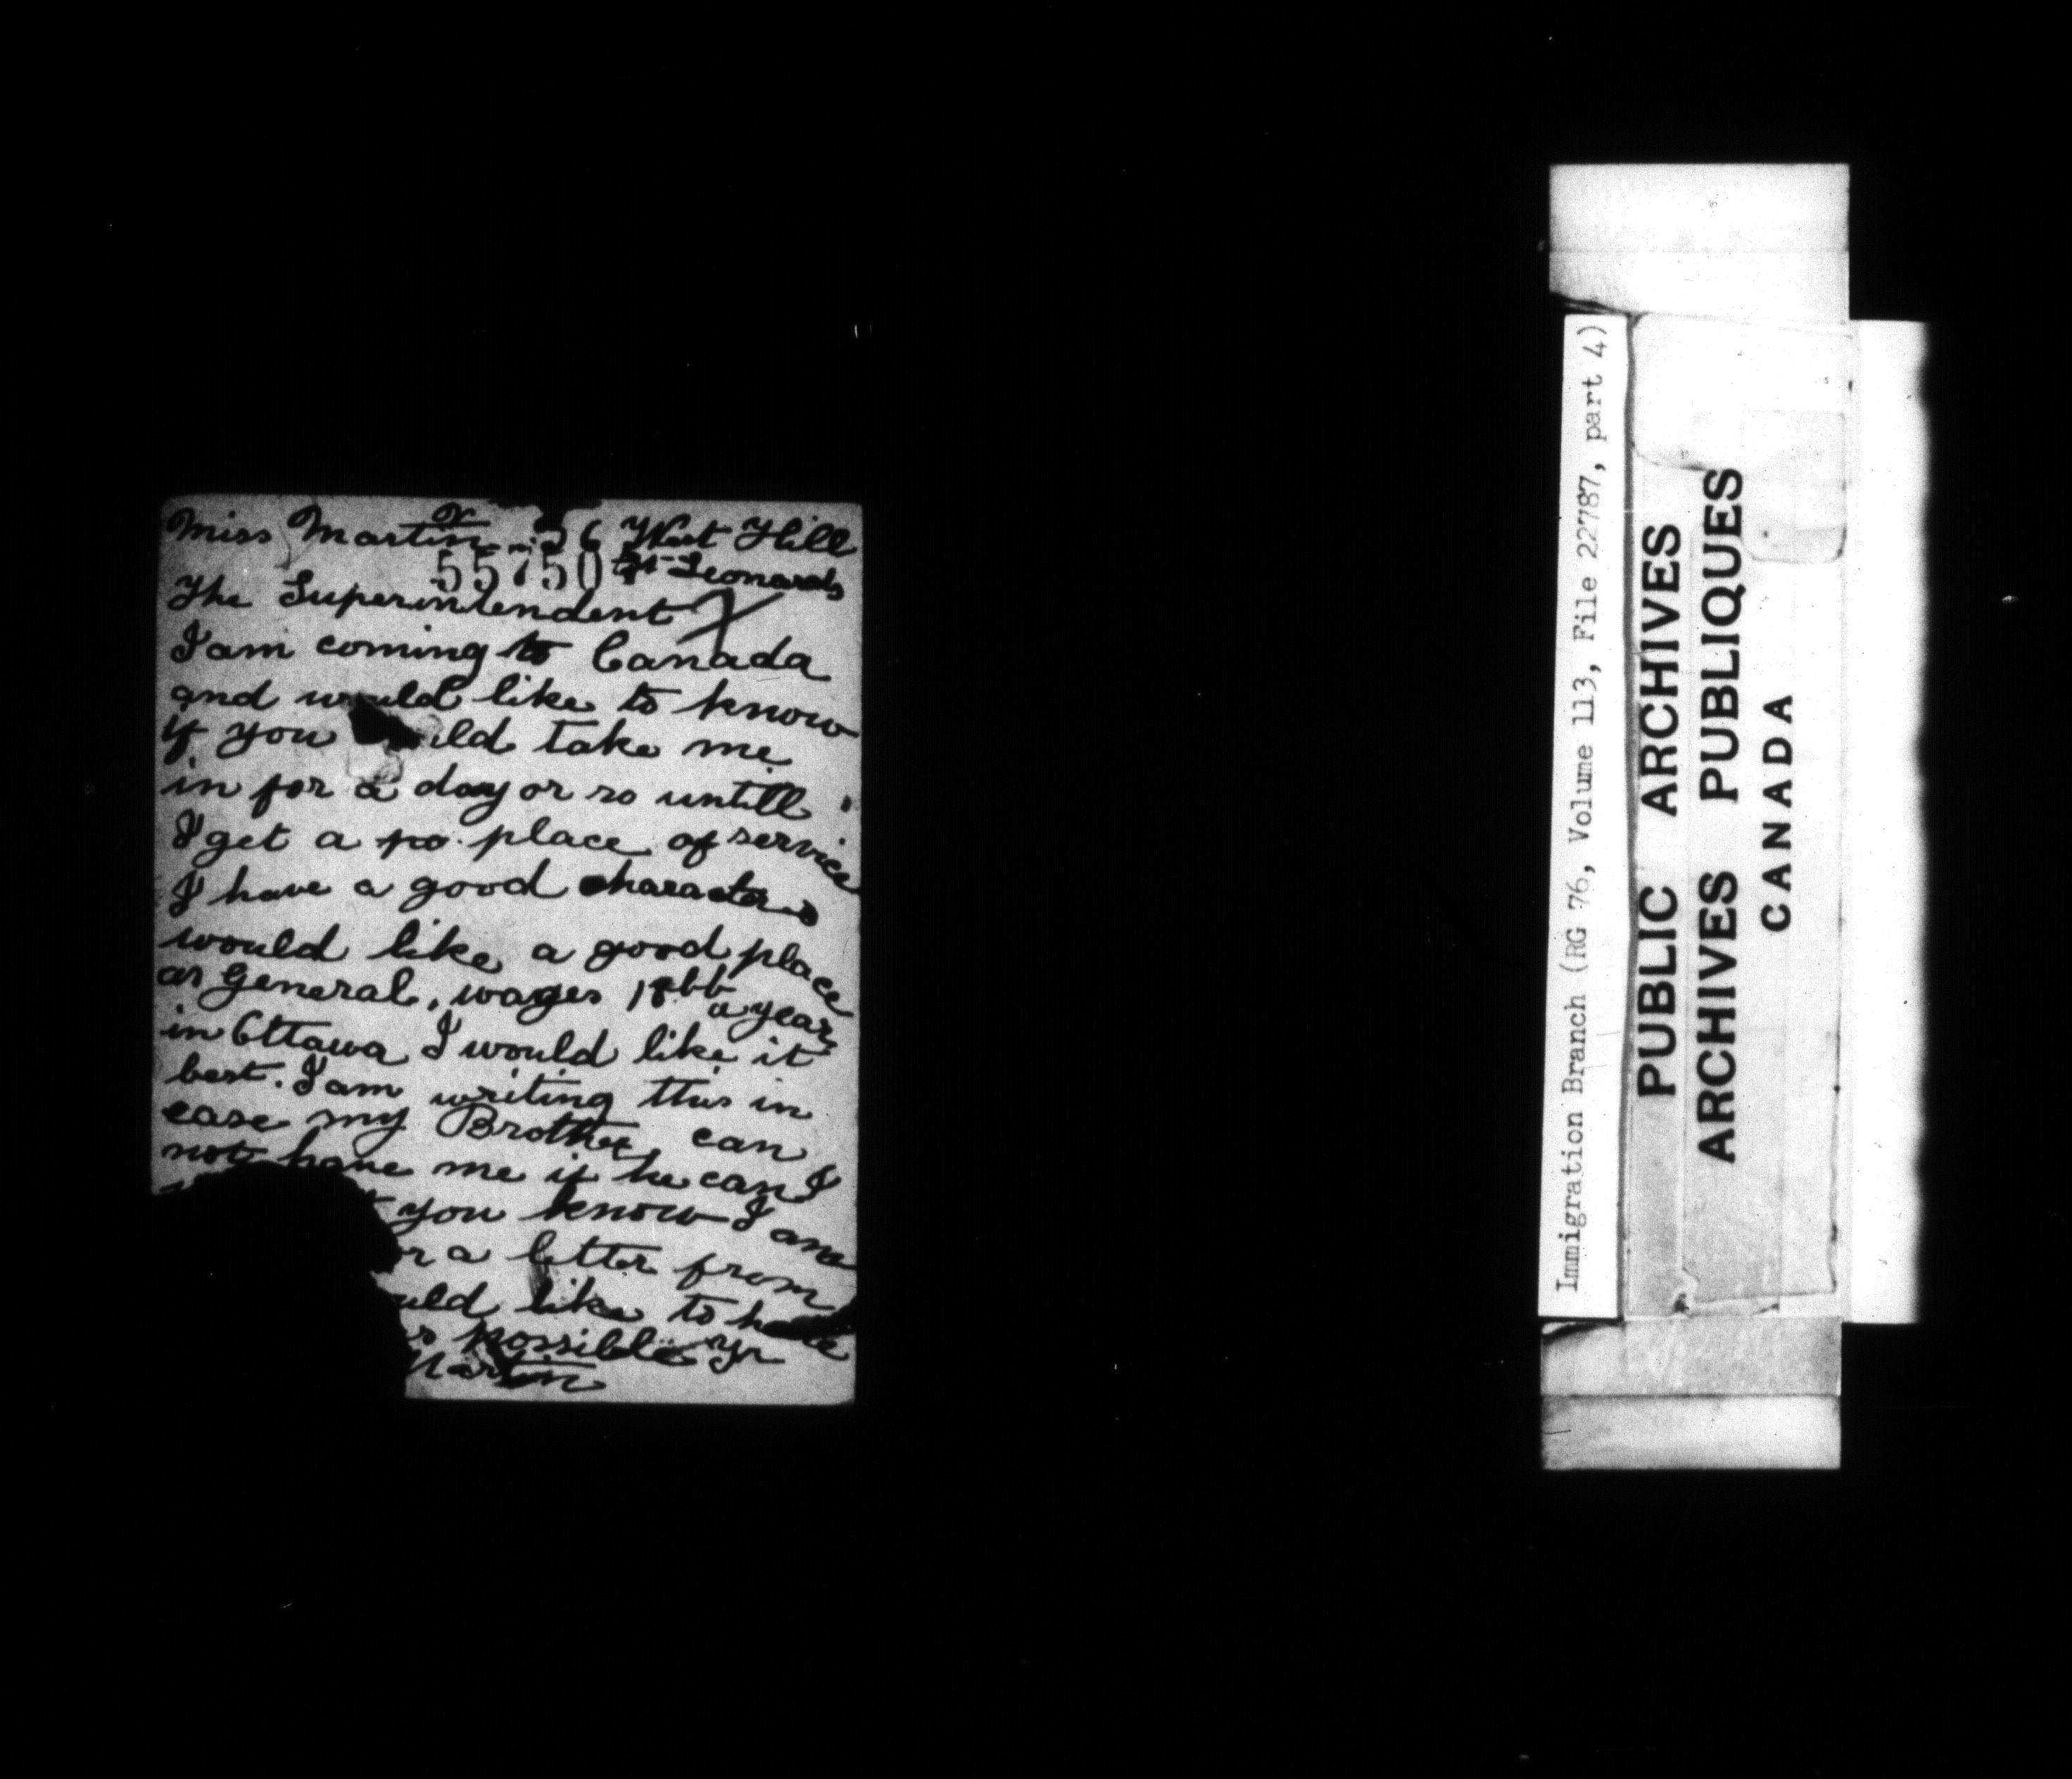 Miss Martin 36 West Hill
55750 St Leonards
The Superintendent
I am coming to Canada
and would like to know
if you ld take me
in for a day or so untill
I get a po place of service
I have a good character
would like a good place
as General, wages 18
a year
in Ottawa I would like it
best. I am writing this in
case my Brother can
not have me if he can I
you know I am
r a letter from
uld like to have
s possible yr
Martin
Immigration Branch (RG 76, Volume 113, File 22787, part 4)
PUBLIC ARCHIVES
ARCHIVES PUBLIQUES
CANADA